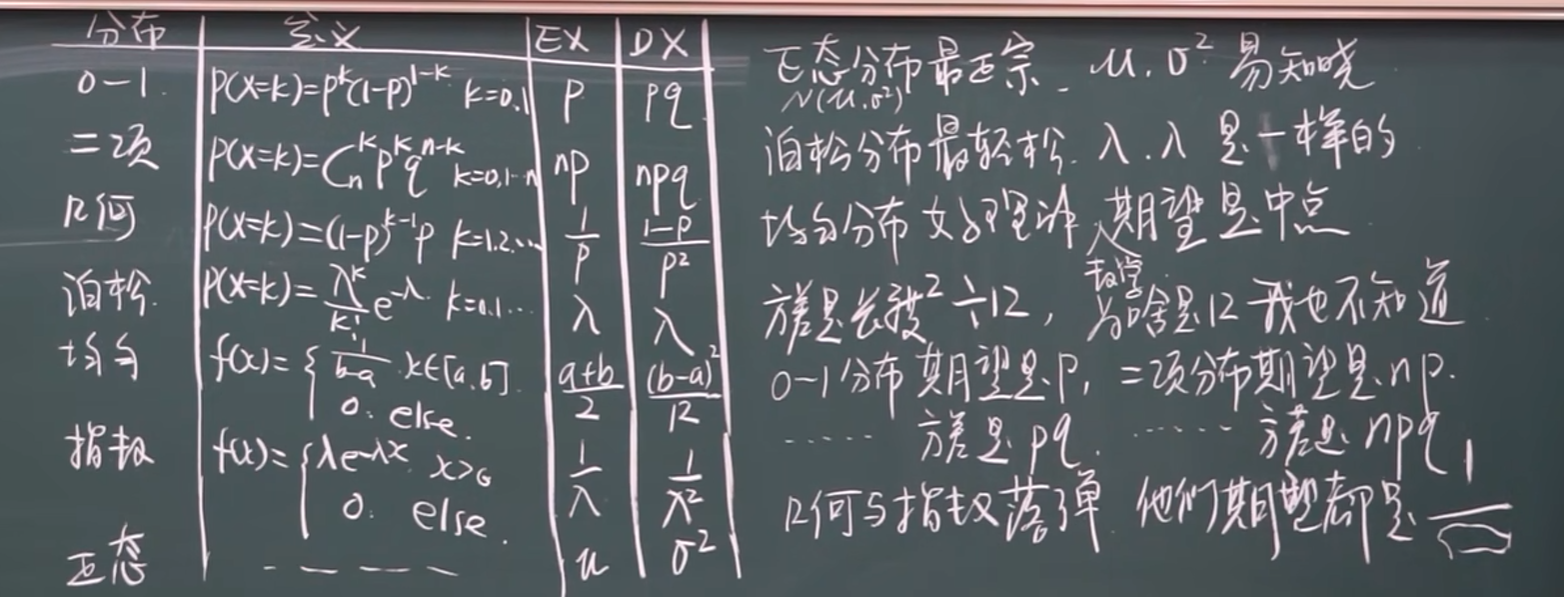 分布 定义 EX DX
0-1 P(X=k)=p^k(1-p)^{1-k} k=0.1 p pq
二项 P(X=k)=C_n^k p^k q^{n-k} k=0,1…n np npq
几何 P(X=k)=(1-p)^{k-1}p k=1.2.… 1/p (1-p)/p²
泊松 P(X=k)=λ^k/k! e^{-λ} k=0.1… λ λ
均匀 f(x)={1/(b-a) x∈[a,b] (a+b)/2 (b-a)²/12
0. else.
指数 f(x)={λe^{-λx} x>0 1/λ 1/λ²
0. else.
正态 ----- μ σ²
正态分布最正宗 μ.σ²易知晓
N(μ.σ²)
泊松分布最轻松 λ.λ是一样的
均匀分布 期望是中点
方差是长度²÷12, 为啥是12我也不知道
数学
0-1分布期望是p, 二项分布期望是np.
…… 方差是pq. …… 方差是npq
几何与指数落单 他们期望都是 1/